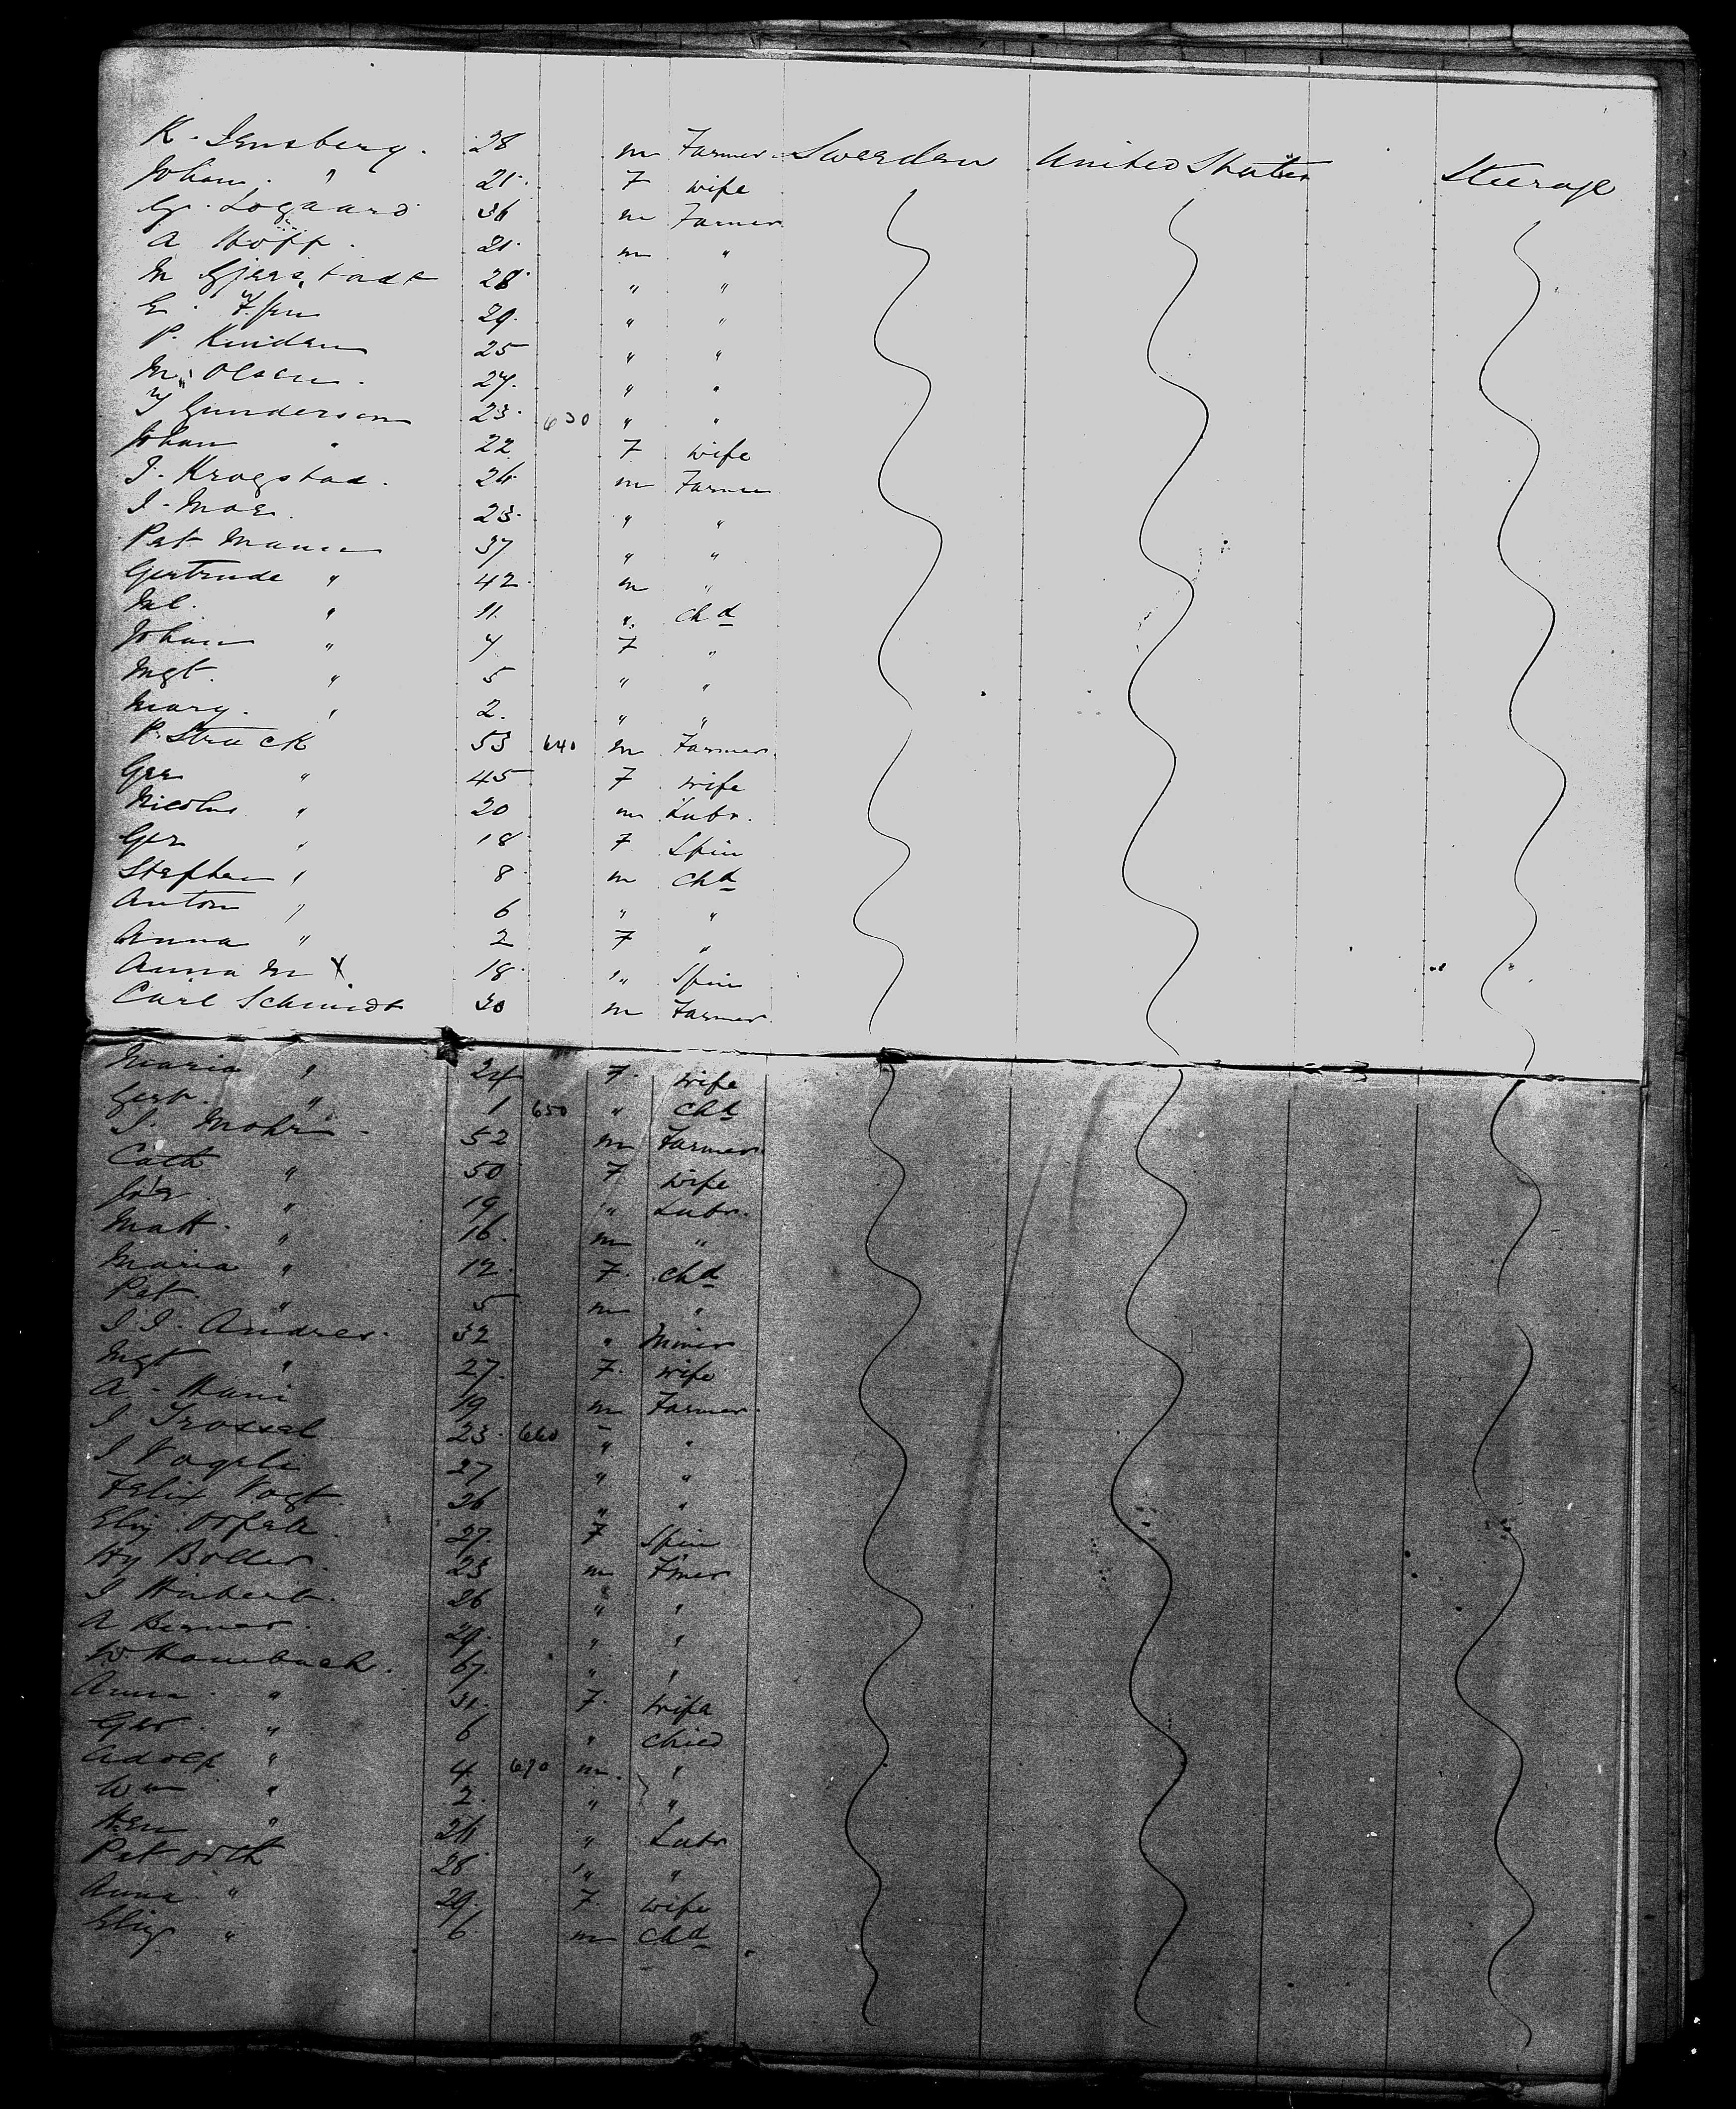 K. Jensberg. 28 m Farmer Sweeden United States Steerage
Johan. " 21. F wife
G. Logaard 36 m Farmer
A Hoff. 21. m "
M Gjerstadt 28. " "
E. 29. " "
P. Kinden 25 " "
M. Olsen. 27. " "
Gunderson 23. 630 " "
Johan " 22 F wife
J. Krogstad. 24 m Farmer
J. Moe. 23. " "
Pet 37 " "
Gertrude " 42. m "
Ml. " 11. " Chd
Johan " 7 F "
Mgt. " 5 " "
Mary. " 2. " "
P. Struck 53 640 m Farmer.
Ger " 45 F wife
Nicolus " 20 m Labr.
Ger " 18 F Spin
Stephen " 8 m Chd
Anton " 6 " "
Anna " 2 F "
Anna M X 18. " Spin
Carl Schmidt 30 m Farmer
Maria " 24 F. wife
Gert. " 1 650 " Chd
J. Mohr 52 m Farmer
Cath " 50 F wife
" 19 " Labr.
Matt. " 16. m "
Maria " 12. F. Chd
Pet. " 5 m "
J J. Andres. 32 " Miner
Mgt " 27. F. wife
A. 19 m Farmer.
J Trossel 23. 660 " "
J Vogeli 27 " "
Felix Vogt. 26 " "
Eliz 27. F Spin
Hy Boller. 23 m Fmer
J 26 " "
A 29. " "
W Hambach. 67. " "
Anna. " 31. F. wife
Ger. " 6 " Child
Adolf " 4. 670 m. "
Wm " 2. " "
Hen " 26 " Labr
Pet Orth 28 " "
Anna " 29. F. wife
Eliz " 6 m Chd